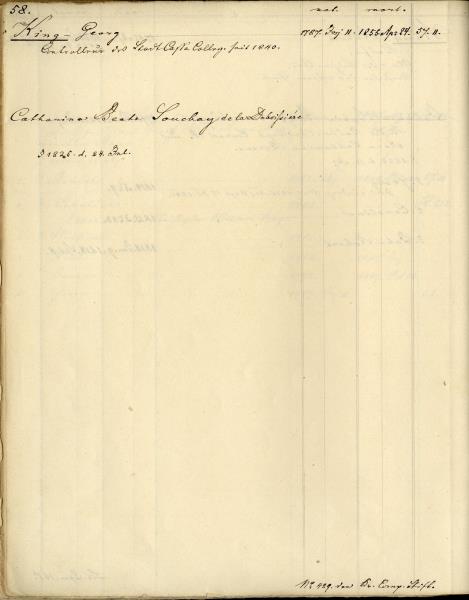 58.
nat. mort.
King - Georg 1787. 11. 1856. Apr 24. 57. 11.
Controlleur des Stadt Cassa Colleg. seit 1840.
Catharina Beate Souchay de la Duboissière
1825. d. 24. Jul.
No 429. der Br. Comp. Stift.